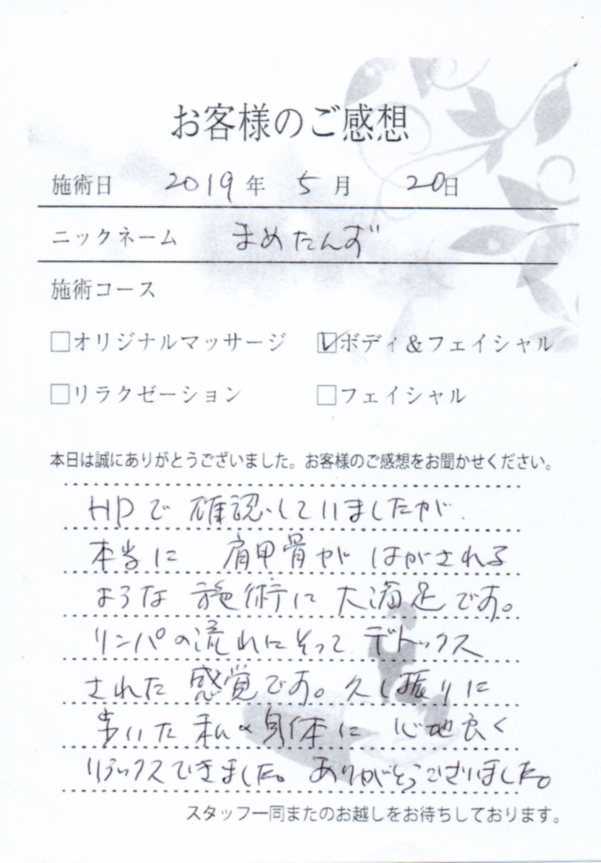 お客様のご感想
施術日 2019年 5月 20日
ニックネーム まめたんず
施術コース
□オリジナルマッサージ ☑ボディ&フェイシャル
□リラクゼーション □フェイシャル
本日は誠にありがとうございました。お客様のご感想をお聞かせください。
HPで 確認していましたが
本当に 肩甲骨が はがされる
ような 施術に 大満足です。
リンパの流れにそって デトックス
された 感覚です。久し振りに
歩いた 私の身体に 心地良く
リラックスできました。ありがとうございました。
スタッフ一同またのお越しをお待ちしております。